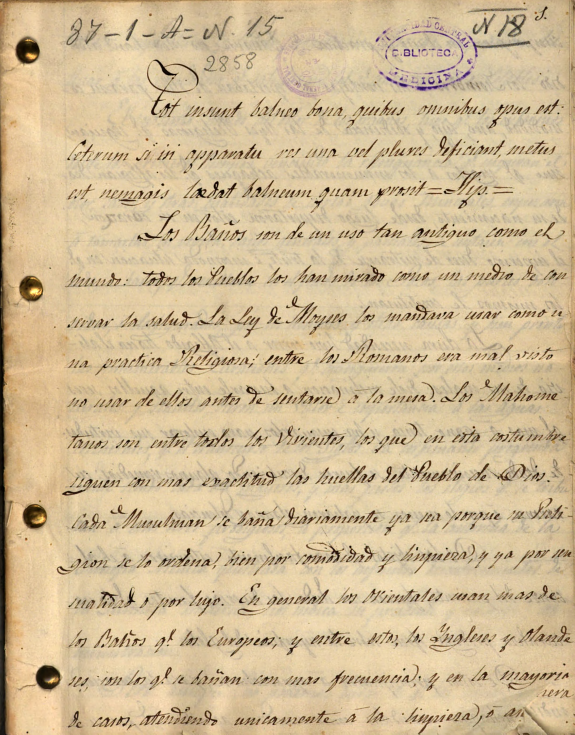 87-1-A=N. 15
N 18
1.
2858
BIBLIOTECA
MEDICINA
Tot insunt balneo bona, quibus omnibus opus est:
Ceterum si in apparatu res una vel plures deficiant, metus
est, nemagis lædat balneum quam prosit = Hip. =
Los Baños son de un uso tan antiguo como el
mundo: todos los Pueblos los han mirado como un medio de con
servar la salud. La Ley de Moyses los mandava usar como u
na practica Religiosa; entre los Romanos era mal visto
no usar de ellos antes de sentarse à la mesa. Los Mahome
tanos son entre todos los vivientes, los que en esta costumbre
siguen con mas exactitud las huellas del Pueblo de Dios.
Cada Musulman se baña diariamente ya sea porque su Reli
gion se lo ordena, bien por comodidad y limpieza, y ya por sen
sualidad ó por lujo. En general los orientales usan mas de
los Baños q.e los Europeos; y entre estos, los Yngleses y Olande
ses, son los q.e se bañan con mas frecuencia; y en la mayoria
de casos, atendiendo unicamente à la limpieza, ó